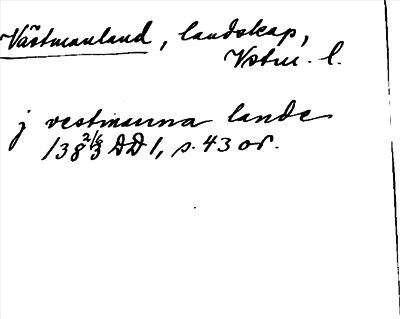 Västmanland, landskap,
Vstm. l.
j vestmanna lande
138 2/6 3 DD 1, s. 43 or.